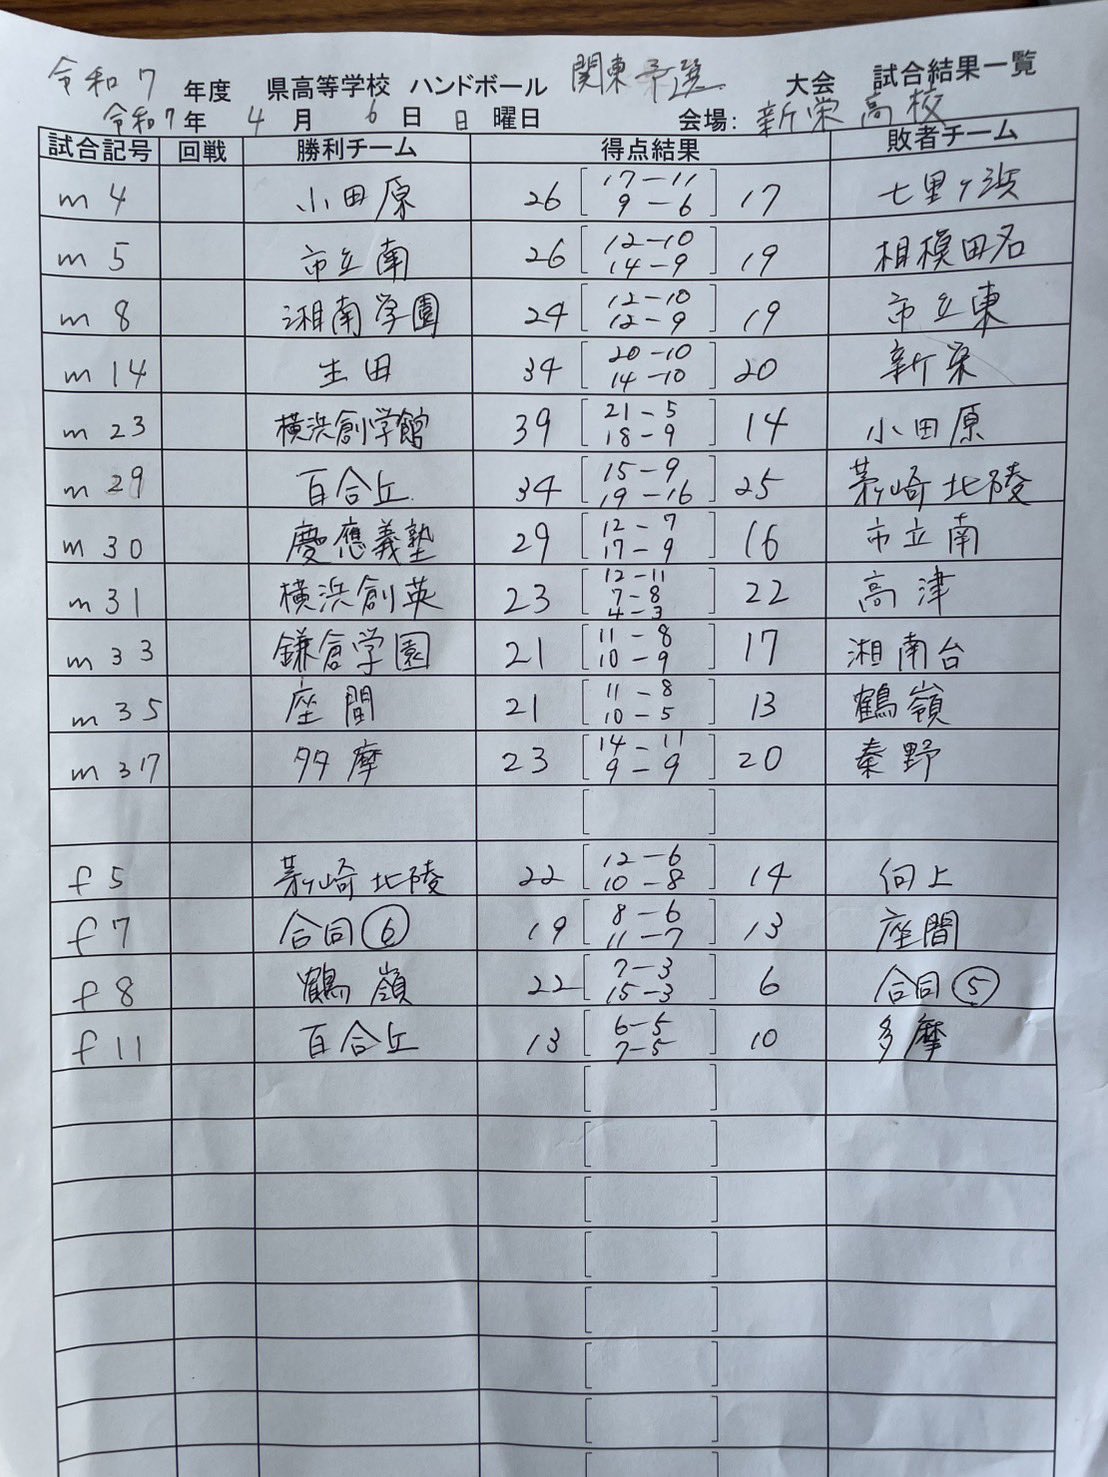 令和7 年度 県高等学校 ハンドボール 関東予選 大会 試合結果一覧
令和7年 4月 6日 日曜日 会場: 新栄高校
試合記号 回戦 勝利チーム 得点結果 敗者チーム
m 4 小田原 26 [17-11 9-6] 17 七里ヶ浜
m 5 市立南 26 [12-10 14-9] 19 相模田名
m 8 湘南学園 24 [12-10 12-9] 19 市立東
m 14 生田 34 [20-10 14-10] 20 新栄
m 23 横浜創学館 39 [21-5 18-9] 14 小田原
m 29 百合丘 34 [15-9 19-16] 25 茅ヶ崎北陵
m 30 慶應義塾 29 [12-7 17-9] 16 市立南
m 31 横浜創英 23 [12-11 7-8 4-3] 22 高津
m 33 鎌倉学園 21 [11-8 10-9] 17 湘南台
m 35 座間 21 [11-8 10-5] 13 鶴嶺
m 37 多摩 23 [14-11 9-9] 20 秦野
f 5 茅ヶ崎北陵 22 [12-6 10-8] 14 向上
f 7 合同⑥ 19 [8-6 11-7] 13 座間
f 8 鶴嶺 22 [7-3 15-3] 6 合同⑤
f 11 百合丘 13 [6-5 7-5] 10 多摩